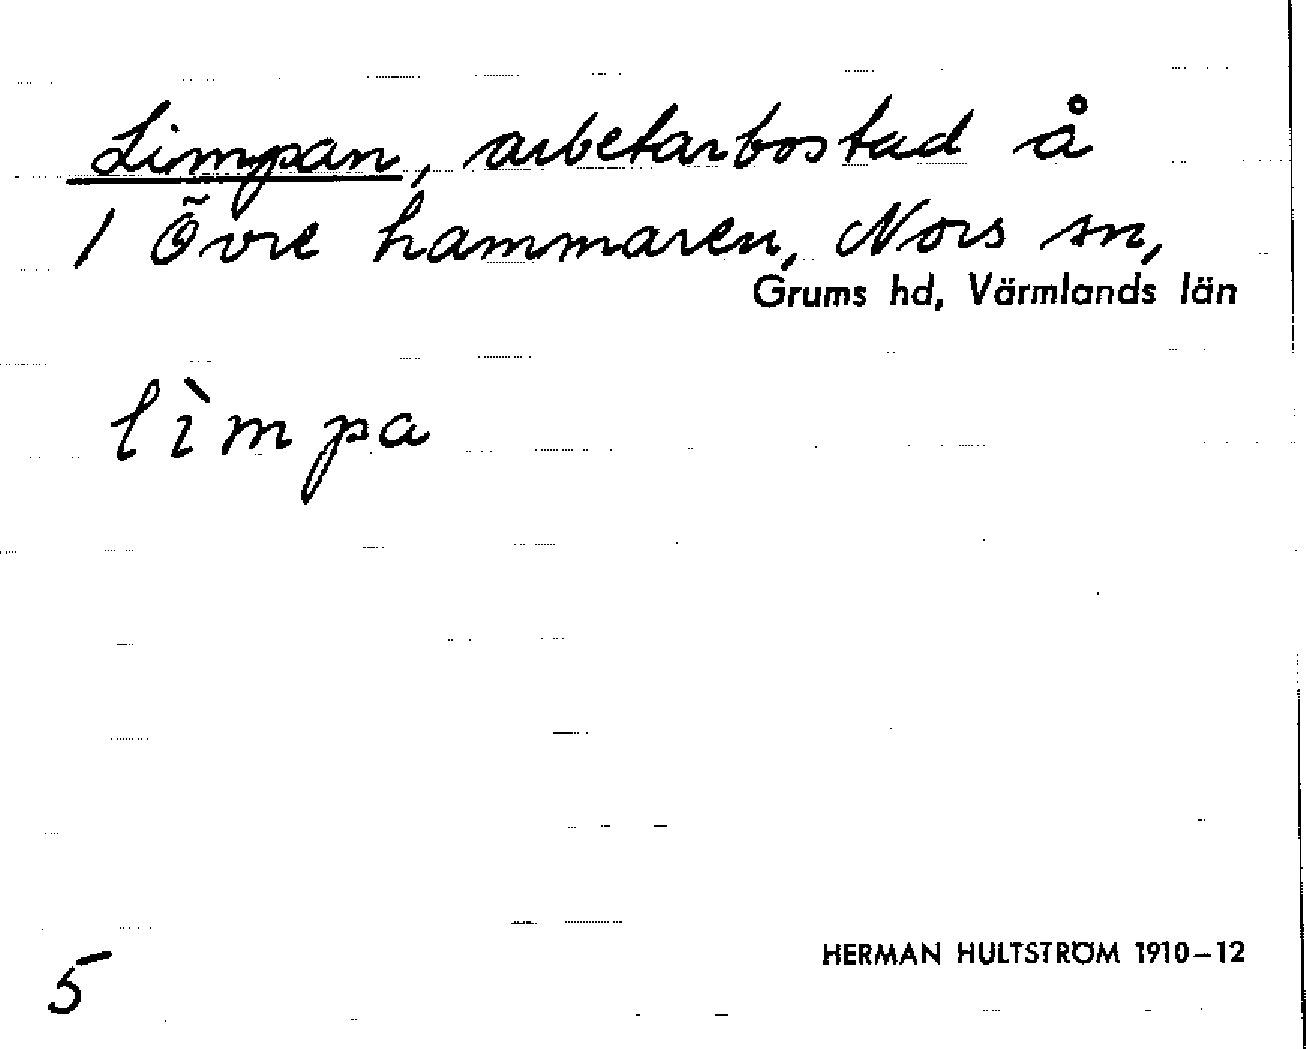 Limpan, arbetarbostad å
/ Övre hammaren, Nors sn,
Grums hd, Värmlands län
lìmpa
HERMAN HULTSTRÖM 1910–12
5